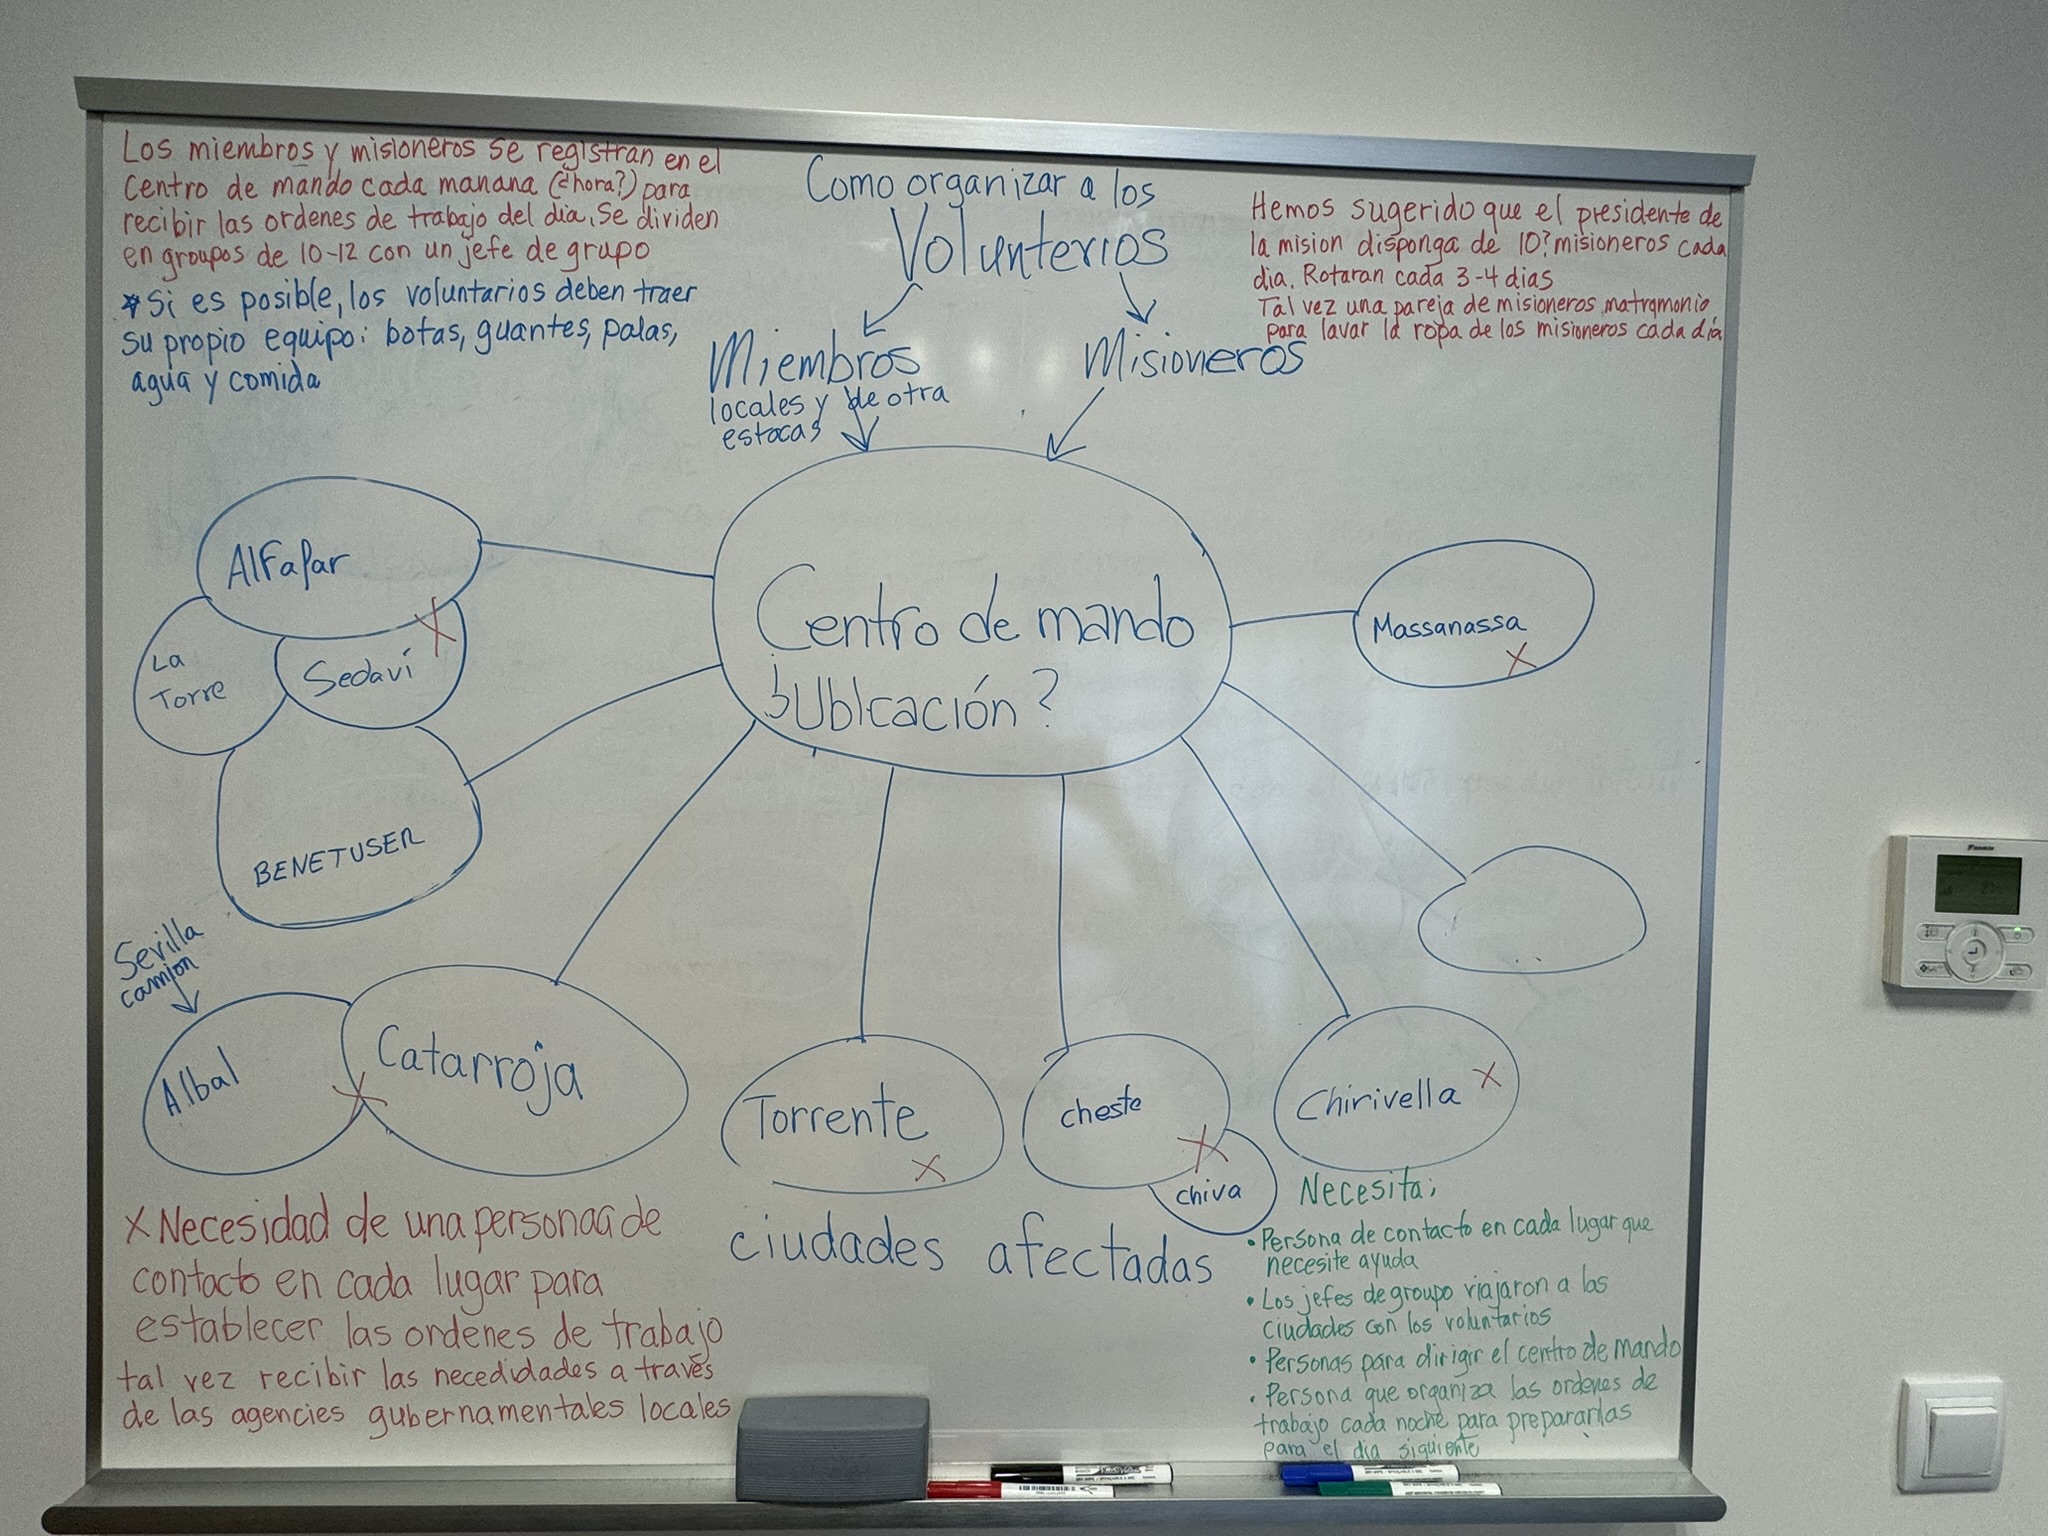 Los miembros y misioneros se registran en el
Centro de mando cada manana (¿hora?) para
recibir las ordenes de trabajo del dia. Se dividen
en groupos de 10-12 con un jefe de grupo
* Si es posible, los voluntarios deben traer
su propio equipo: botas, guantes, palas,
agua y comida
Como organizar a los
Volunterios
Miembros
locales y de otra
estocas
Misioneros
Hemos sugerido que el presidente de
la mision disponga de 10? misioneros cada
dia. Rotaran cada 3-4 dias
Tal vez una pareja de misioneros matramonio
para lavar la ropa de los misioneros cada día
Centro de mando
¿Ubicación?
Alfafar
X
La
Torre
Sedaví
BENETUSER
Massanassa
X
Sevilla
camion
Albal
X
Catarroja
Torrente
X
cheste
X
chiva
Chirivella X
ciudades afectadas
X Necesidad de una persona de
contacto en cada lugar para
establecer las ordenes de trabajo
tal vez recibir las necedidades a través
de las agencies gubernamentales locales
Necesita:
• Persona de contacto en cada lugar que
necesite ayuda
• Los jefes de groupo viajaron a las
ciudades con los voluntarios
• Personas para dirigir el centro de mando
• Persona que organiza las ordenes de
trabajo cada noche para prepararlas
para el dia siguiente